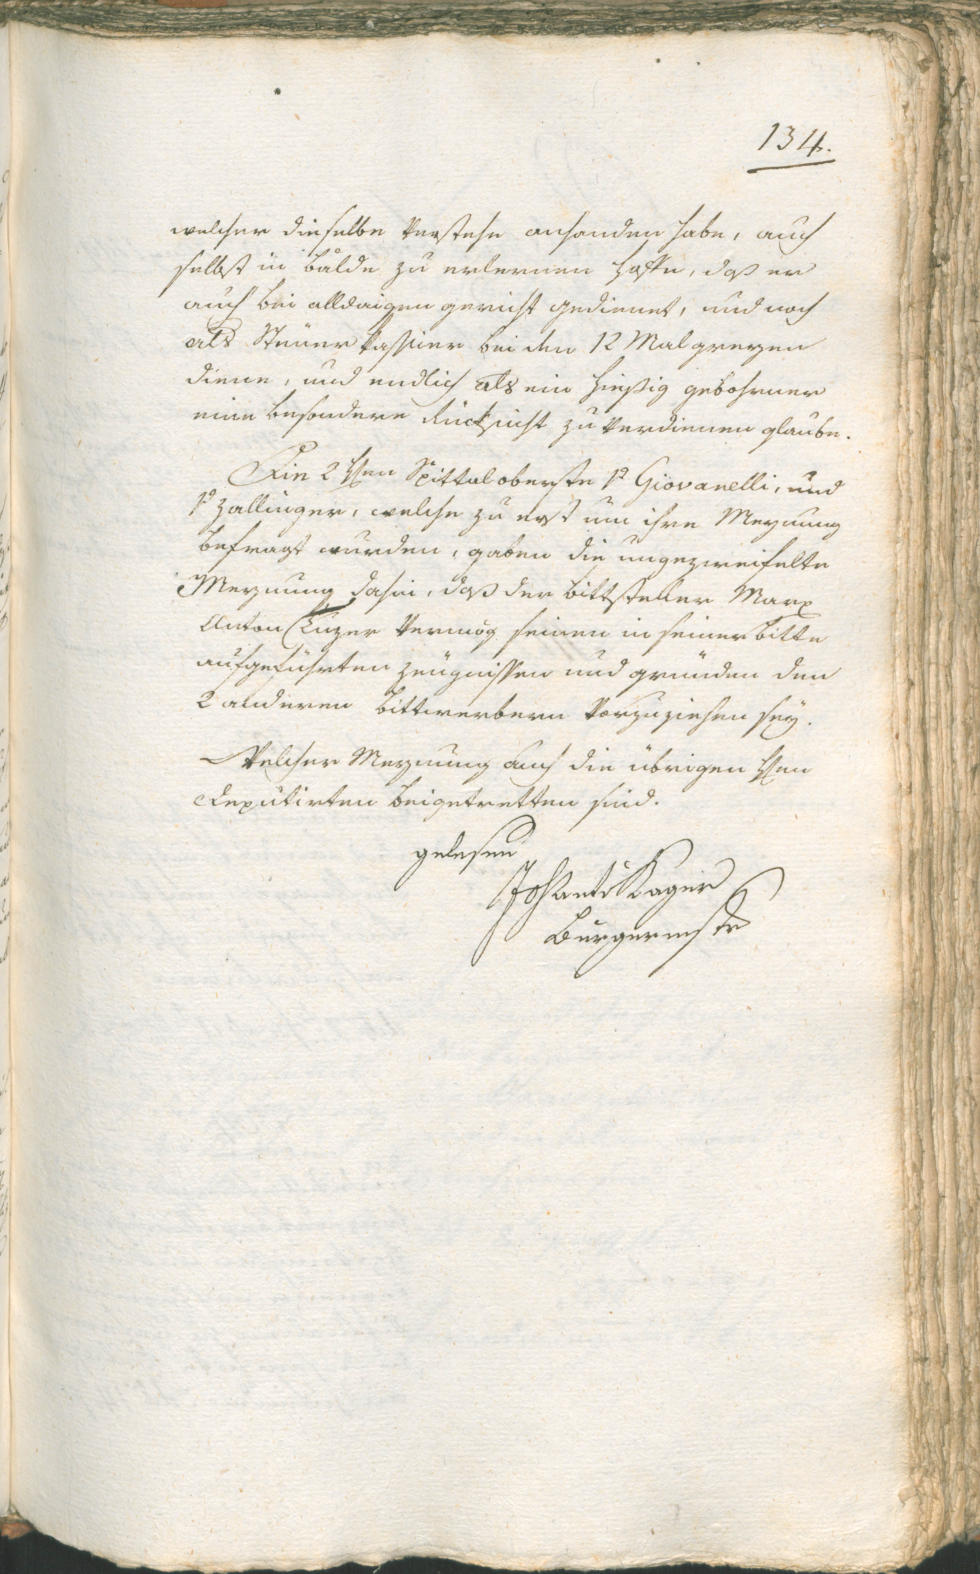 134.
welcher dieselbe verstehe anhanden habe, auch
selbst in bälde zu erlernen hoffe, daß er
auch bei alldaigen gericht gedienet, und noch
als Steuer Kassier bei den 12 Malgreyen
diene, und endlich als ein hießig gebohrner
eine besondere Rücksicht zu verdienen glaube.
Die 2 Hen Spittaloberste Pd Giovanelli, und
Pd Zallinger, welche zu erst um ihre Meynung
befragt wurden, gaben die ungezweifelte
Meynung dahin, daß der bittsteller Marx
Anton vermög seinen in seiner bitte
aufgeführten zeügnissen und gründen den
2 anderen bittwerbern vorzuziehen seÿ.
Welcher Meynung auch die übrigen Hen
Deputirten beigetretten sind.
gelesen
Joh Anto Kager
Burgermstr